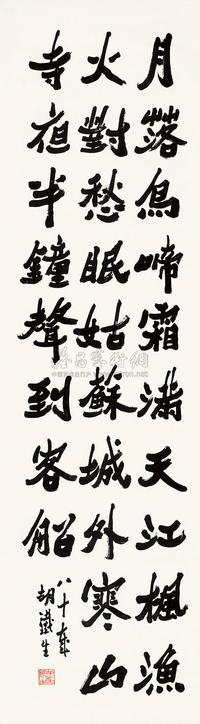 月落烏啼霜滿天江楓漁
火對愁眠姑蘇城外寒山
寺夜半鐘聲到客船
八十歲
胡鐵生
雅昌藝術網